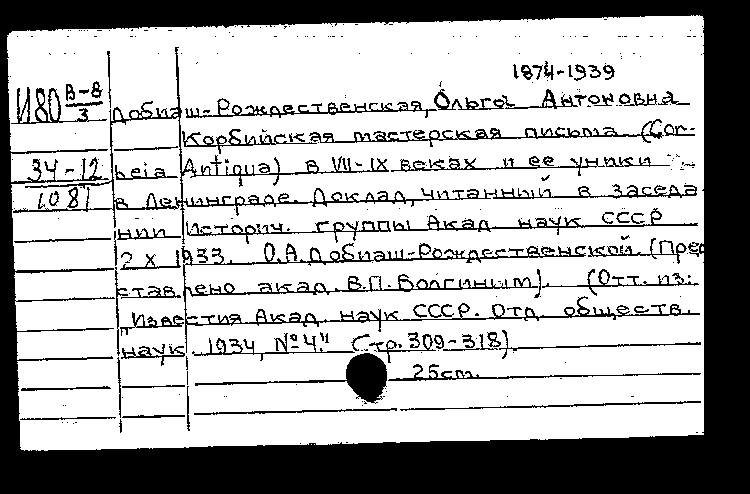 1874-1939
И80 В-8/3 Добиаш-Рождественская, Ольга Антоновна
Корбийская мастерская письма (Cor-
34-12 beia Antiqua) в VII-IX веках и ее уники
1081 в Ленинграде. Доклад, читанный в заседа
нии Историч. группы Акад. наук СССР
2 X 1933. О.А. Добиаш-Рождественской. (Пред
ставлено акад. В.П. Волгиным). (Отт. из:
"Известия Акад. наук СССР. Отд. обществ.
наук. 1934, №4." Стр. 309-318).
25cm.